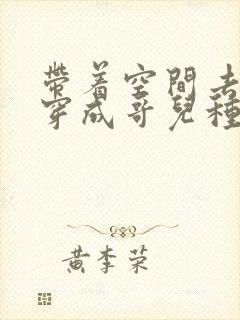 带着空間去
穿成哥兒種
黄李荣